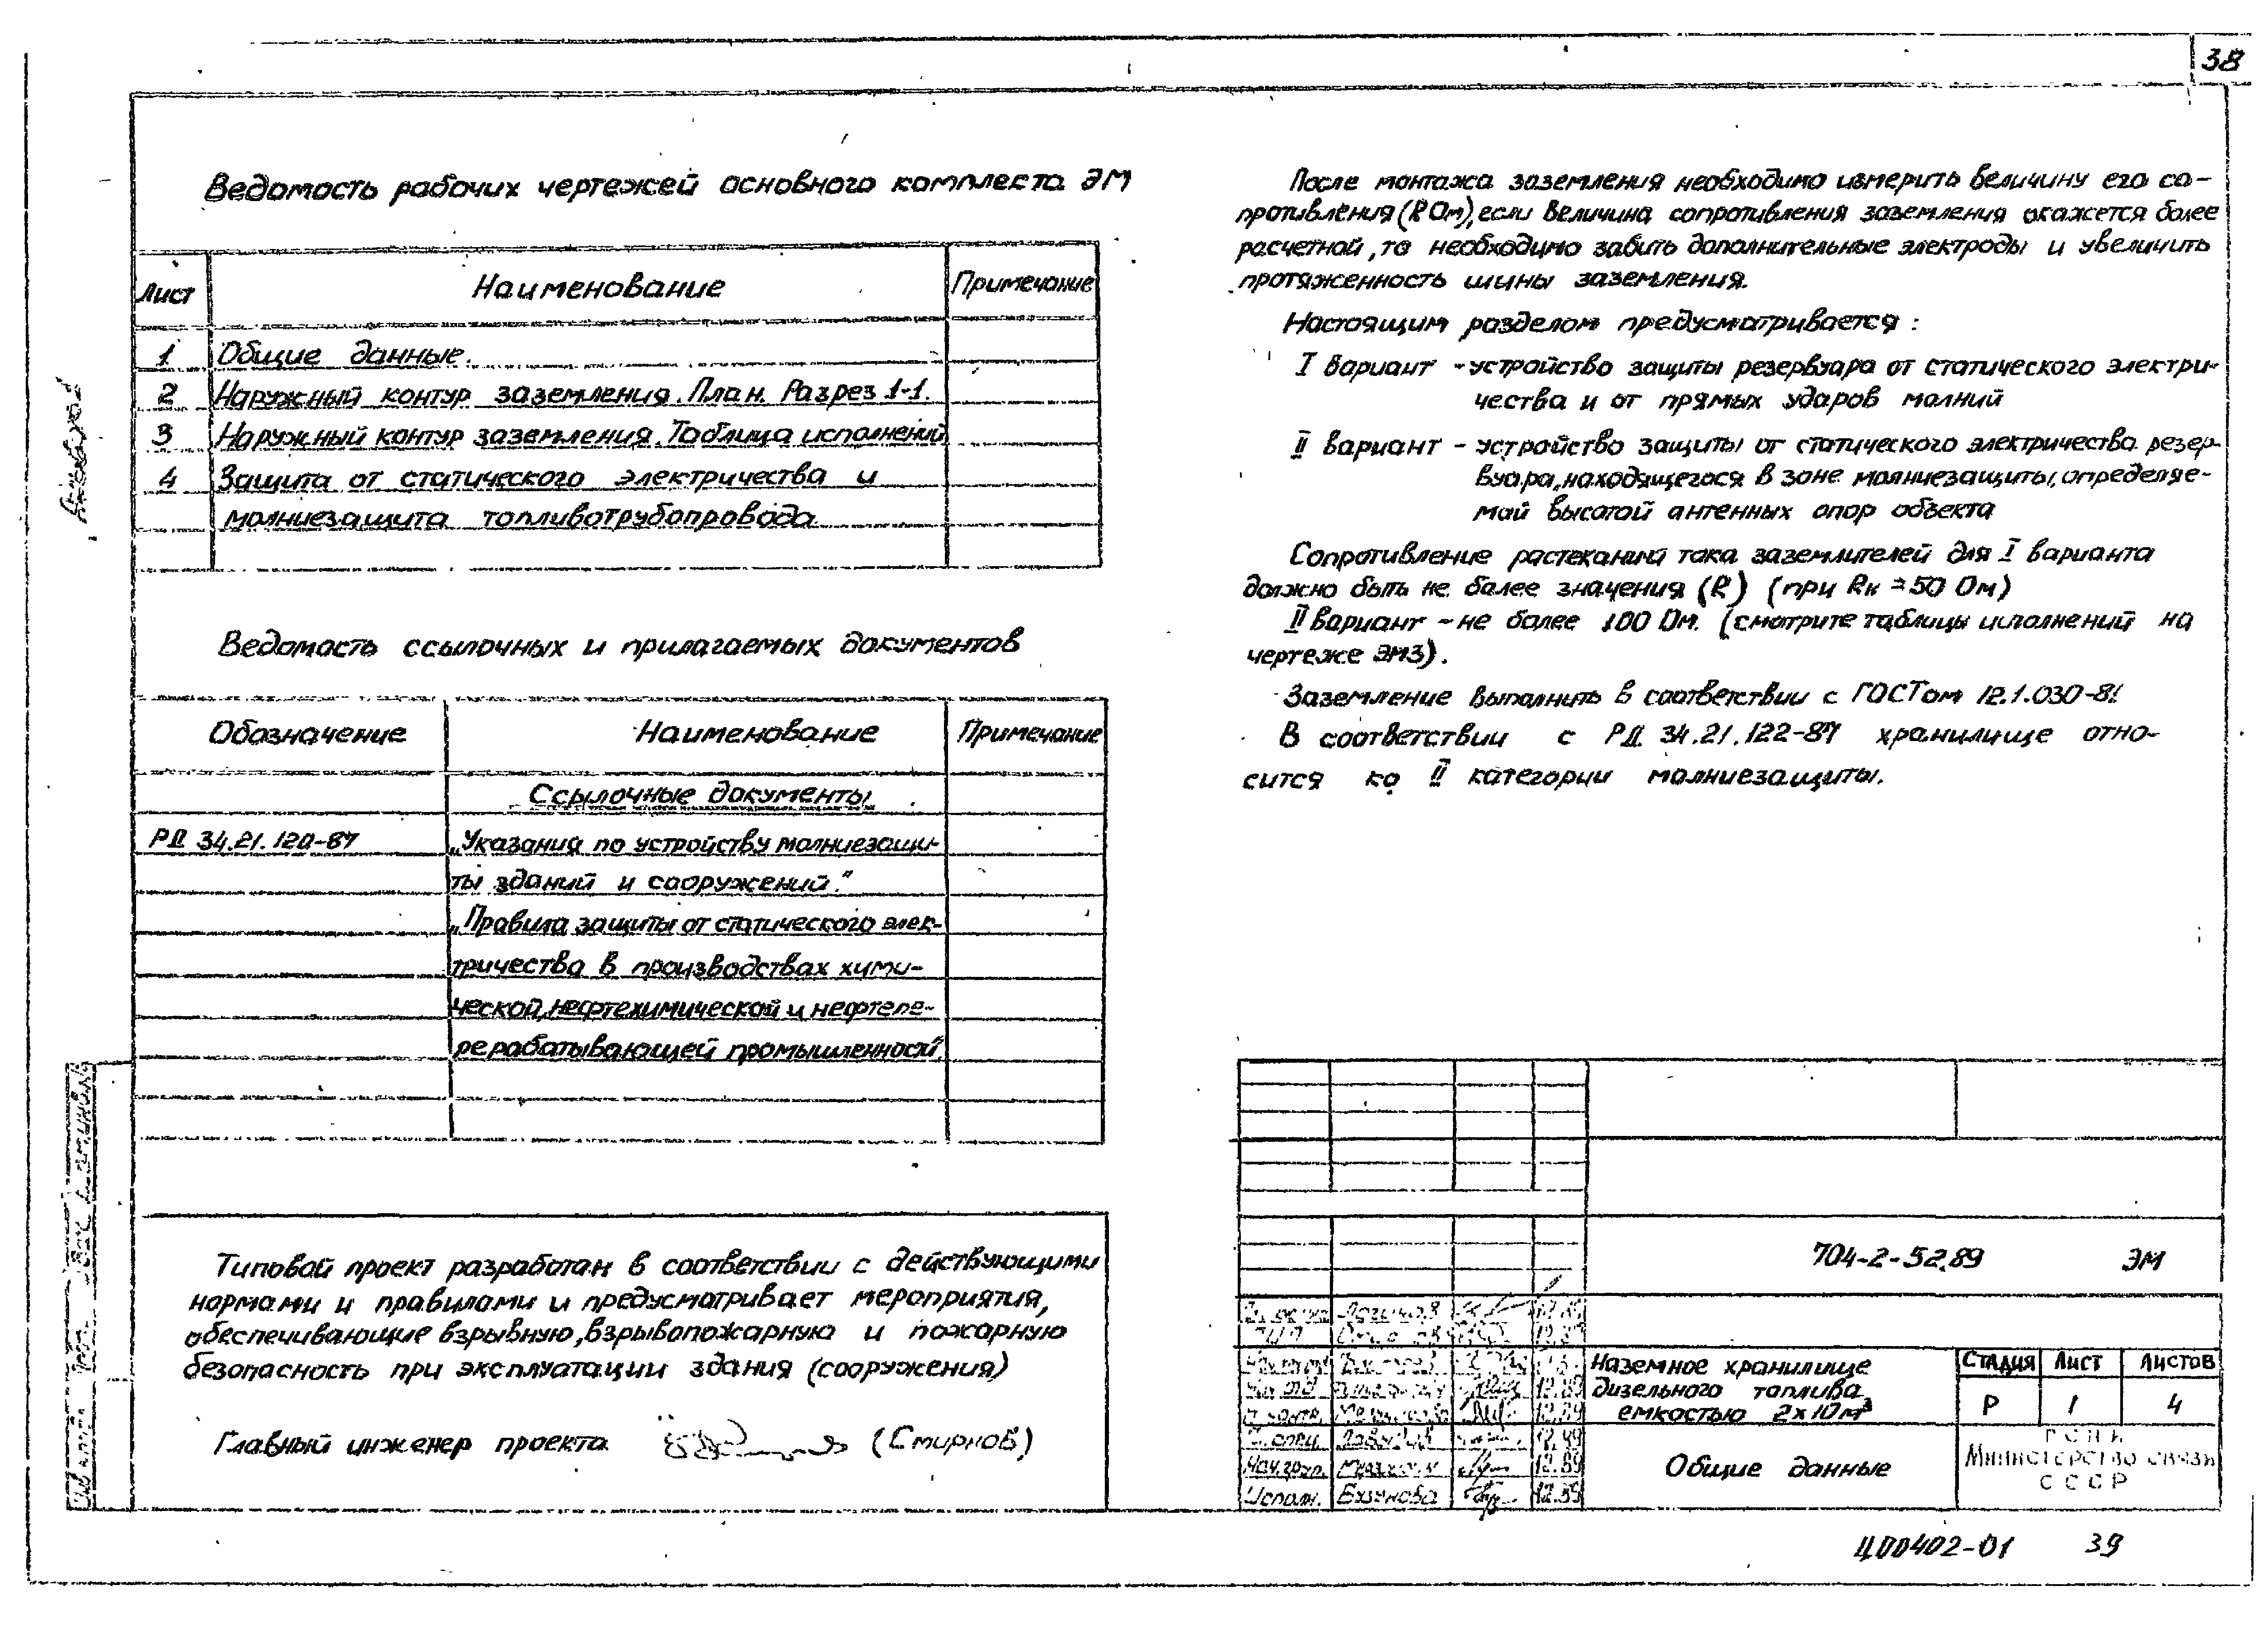 38
Ведомость рабочих чертежей основного комплекта ЭМ
Лист Наименование Примечание
1 Общие данные.
2 Наружный контур заземления. План. Разрез 1-1.
3 Наружный контур заземления. Таблица исполнений
4 Защита от статического электричества и
молниезащита топливотрубопровода
Ведомость ссылочных и прилагаемых документов
Обозначение Наименование Примечание
Ссылочные документы
РД 34.21.120-87 „Указания по устройству молниезащи-
ты зданий и сооружений."
„Правила защиты от статического элек-
тричества в производствах хими-
ческой, нефтехимической и нефтепе-
рерабатывающей промышленности".
Типовой проект разработан в соответствии с действующими
нормами и правилами и предусматривает мероприятия,
обеспечивающие взрывную, взрывопожарную и пожарную
безопасность при эксплуатации здания (сооружения)
Главный инженер проекта (Смирнов)
После монтажа заземления необходимо измерить величину его со-
противления (R Ом), если величина сопротивления заземления окажется более
расчетной, то необходимо забить дополнительные электроды и увеличить
протяженность шины заземления.
Настоящим разделом предусматривается:
I вариант - устройство защиты резервуара от статического электри-
чества и от прямых ударов молний
II вариант - устройство защиты от статического электричества резер-
вуара, находящегося в зоне молниезащиты, определяе-
мой высотой антенных опор объекта
Сопротивление растеканий тока заземлителей для I варианта
должно быть не более значения (R) (при Rк = 50 Ом)
II вариант - не более 100 Ом. (смотрите таблицы исполнений на
чертеже ЭМ3).
Заземление выполнить в соответствии с ГОСТом 12.1.030-81
В соответствии с РД 34.21.122-87 хранилище отно-
сится ко II категории молниезащиты.
704-2-52.89 ЭМ
Наземное хранилище
дизельного топлива
емкостью 2х10м³
Стадия Лист Листов
Р 1 4
Общие данные
Министерство связи
СССР
12.89
Нач.груп. 12.89
Исполн. Бузунова 12.89
ЦОО402-01 39